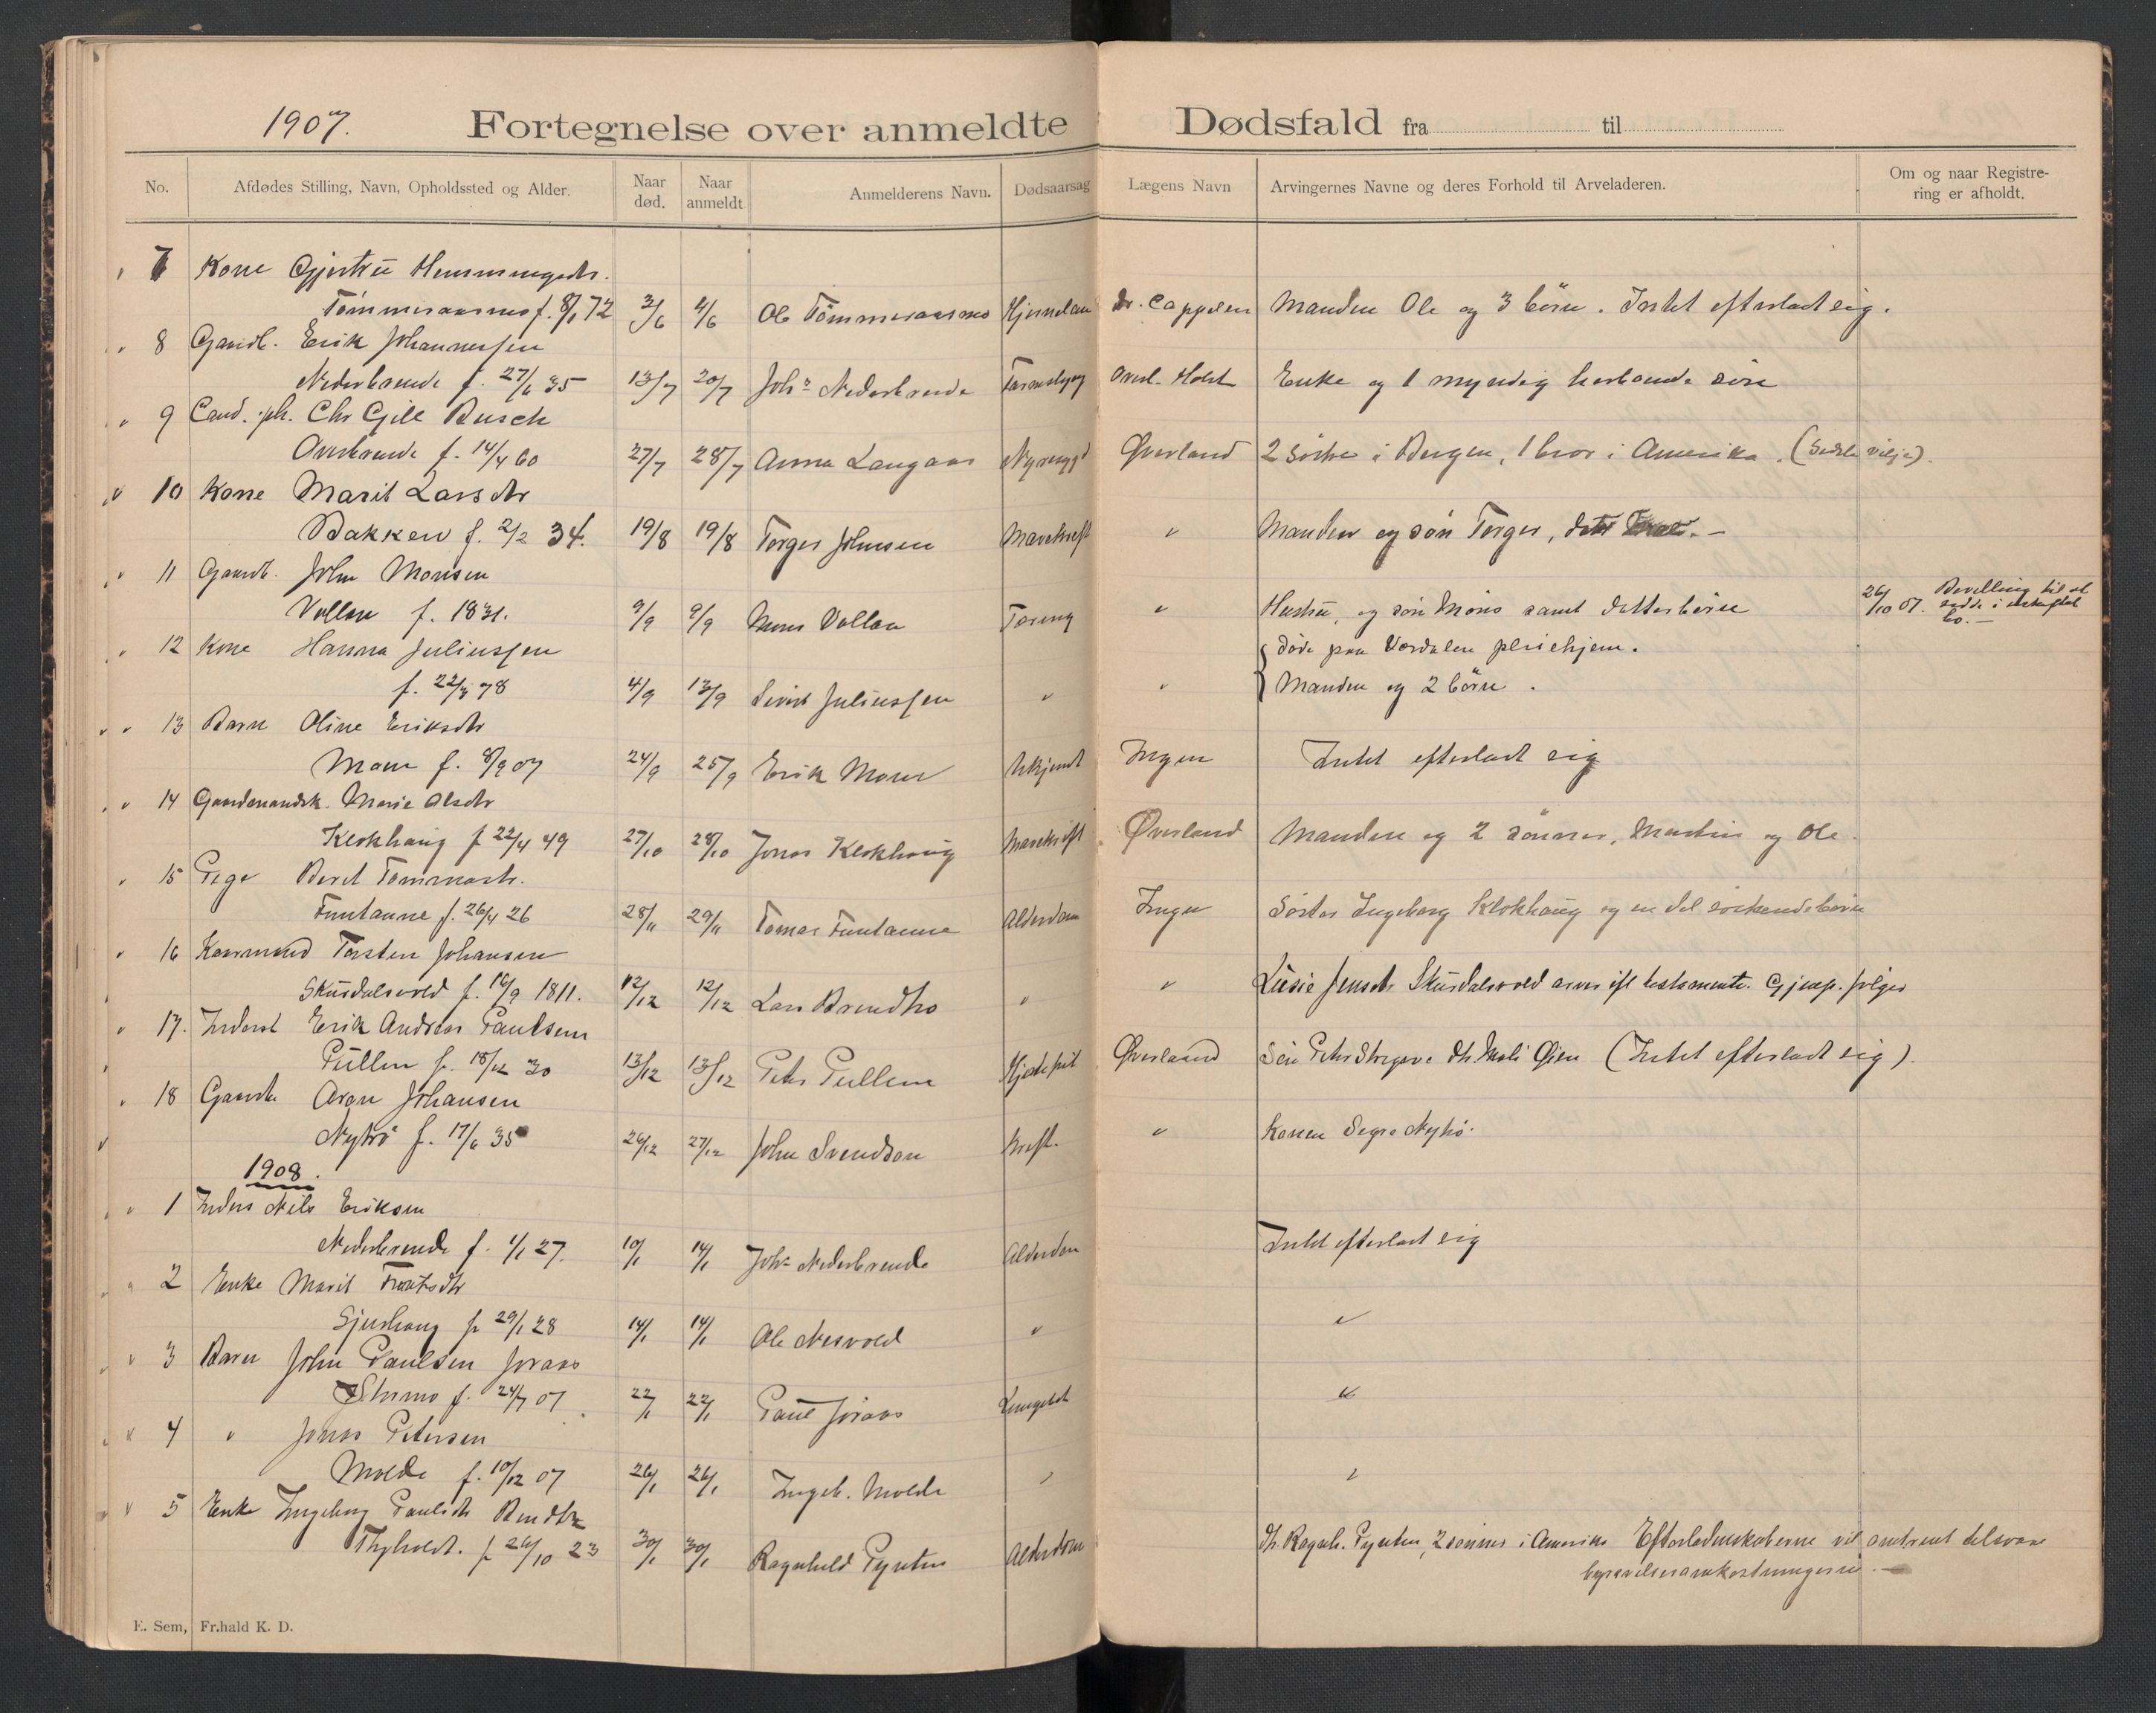 1907. Fortegnelse over anmeldte Dødsfald fra til
No. Afdødes Stilling, Navn, Opholdssted og Alder. Naar død. Naar anmeldt Anmelderens Navn. Dødsaarsag Lægens Navn Arvingernes Navne og deres Forhold til Arveladeren. Om og naar Registrering er afholdt.
7 Kone Gjertrü Hemmingsdtr.
Tömmeraasmo f. 8/1 72 3/6 4/6 Ole Tömmeraasmo Dr. Cappelen Manden Ole og 3 börn. Intet efterladt sig.
8 Gaardb. Erik Johannessen
Nederbrende f. 27/6 35 13/7 20/7 Johs Nederbrende Overl. Holst Enke og 1 myndig sön
9 Cand. ph. Chr Gill Busch
Overbrende f. 14/4 60 27/7 28/7 Anna Langaas Øverland 2 söstre i Bergen, 1 bror i Amerika. (Sidste vilje).
10 Kone Marit Larsdtr
Bakken f. 2/2 34. 19/8 19/8 Torger Johnsen Mavekreft " Manden og sön Torger,
11 Gaardb. John Monsen
Vollan f. 1831. 9/9 9/9 Mons Vollan Tæring " Hustru, og sön Mons samt datterbörn 26/10 07. Bevilling til at sidde i uskiftet bo.-
12 Kone Hanna Juliussen döde paa Værdalen pleiehjem.
f. 22/4 78 4/9 13/9 Sivert Juliussen " " Manden og 2 börn.
13 Barn Oline Eriksdtr
Moan f. 8/9 07 24/9 25/9 Erik Moan Ukjendt Ingen Intet efterladt sig
14 Gaardmandsk. Marie Olsdtr
Klokhaug f 22/4 49 27/10 28/10 Jonas Klokhaug Mavekreft Øverland Manden og 2 sönner, Martin og Ole.
15 Pige Beret Tommasdtr.
Funtaune f. 26/4 26 28/11 29/11 Tomas Funtaune Alderdom Ingen Söster Ingeborg Klokhaug og en del söskendebörn
16 Kaarmand Torsten Johansen
Skusdalsvold f. 16/9 1811. 12/12 12/12 Lars Brendmo " " Lusie Jensdtr Skusdalsvold arver ifl testamente. Gjenp. följer
17. Inderst Erik Andreas Paulsen
Püllen f. 18/12 30 13/12 13/12 Peter Püllen Øverland Sön Peter dtr. Mali Øien (Intet efterladt sig).
18 Gaardbr Aron Johansen
Nytrö f. 17/6 35 26/12 27/12 John Svendsen Kreft. " Konen Segre Nytrö.
1908.
1 Inders Nils Eriksen
Nederbrende f. 1/1 27. 10/1 14/1 Johs Nederbrende Alderdom Intet efterladt sig
2 Enke Marit
f 29/1 28 14/1 14/1 Ole Nesvold " "
3 Barn John Paulsen Joraas
f. 24/7 07 22/1 22/1 Paul Joraas "
4 " Jonas Petersen
Molde f. 10/12 07 26/1 26/1 Ingeb. Molde " "
5 Enke Ingeborg Paulsdtr
Thyholdt. f 26/10 23 30/1 30/1 Ragnhild Pynten Alderdom Dtr. Ragnh. Pynten, 2 sönner i Amerika Efterladenskaberne vil omtrent tilsvare
begravelsesomkostningerne.-
E. Sem, Fr.hald K. D.